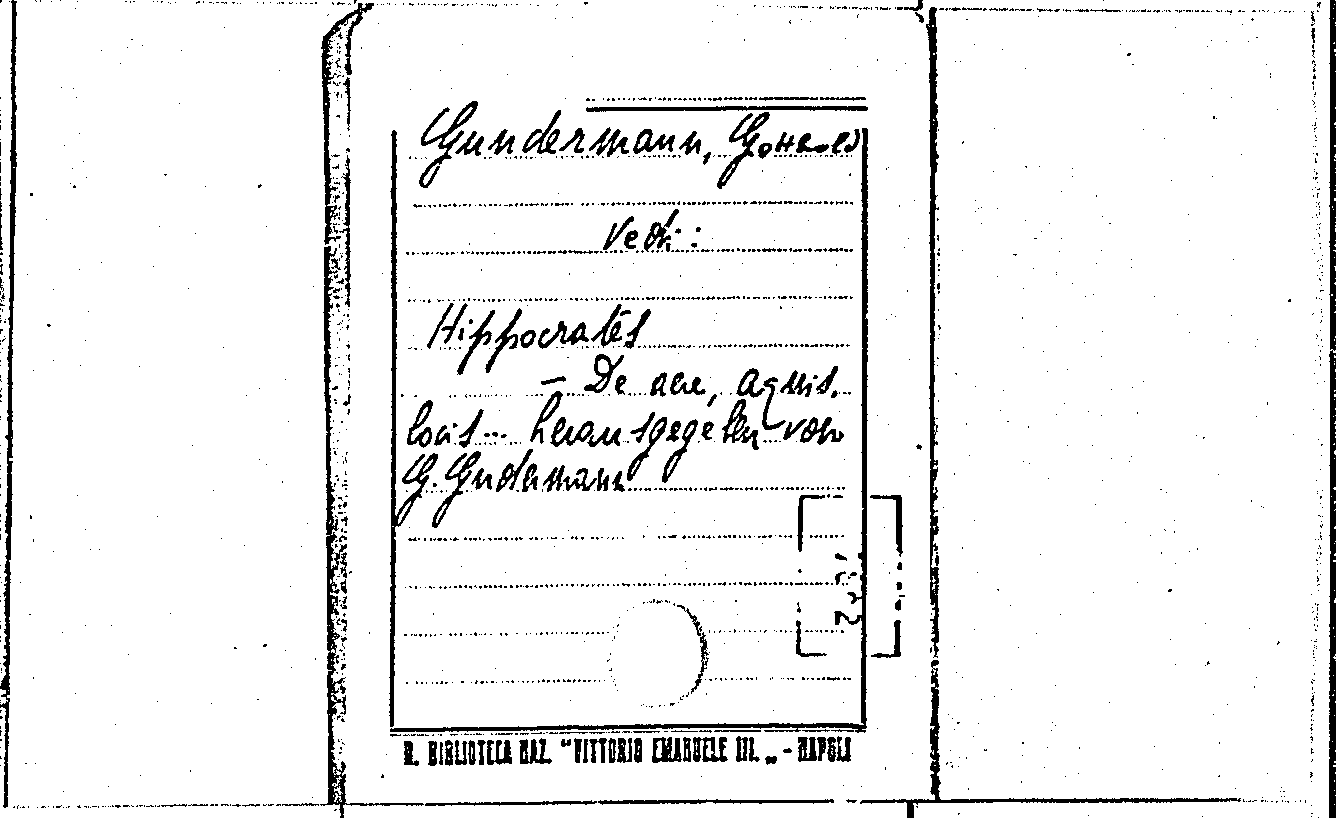 Gundermann, Gotthold
Vedi:
Hippocrates
- De aere, aquis,
locis... herausgegeben von
G. Gudermann
R. BIBLIOTECA NAZ. "VITTORIO EMANUELE III. „ - NAPOLI